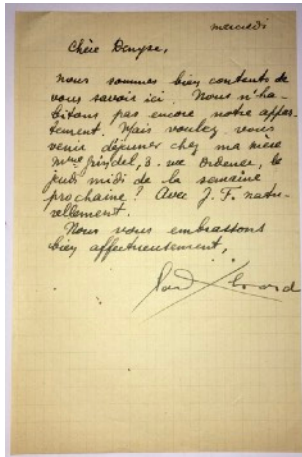 mercredi
Chère Denyse,
nous sommes bien contents de
vous savoir ici. Nous n'ha-
bitons pas encore notre appar-
tement. Mais voulez vous
venir déjeuner chez ma mère
Mme Grindel, 3. rue Ordener, le
jeudi midi de la semaine
prochaine? Avec J. F. natu-
rellement.
Nous vous embrassons
bien affectueusement,
Paul Eluard